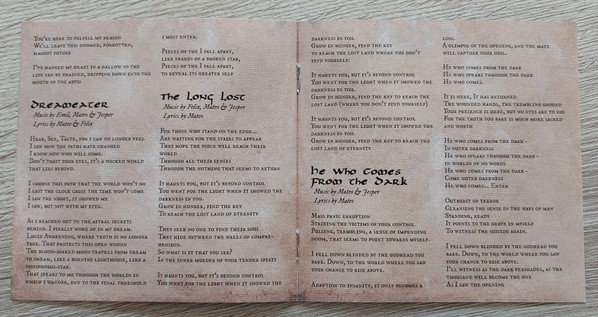 You're here to fulfill my reason
We'll leave this doomed, forgotten,
maggot future
I've hanged my heart in a hallow so the
life can be drained, dripping down into the
mouth of the abyss
Dreameater
Music by Emil, Mateo & Jesper
Lyrics by Mateo & Felix
Hear, See, Taste, for I can no longer feel
I saw how the paths have changed
I know now who will come.
Don't trust your eyes, it's a wicked world
that lies behind.
I chouse this path that the world won't go
I cast the clock cause the time won't come
I saw the night, it showed me
I saw, but not with my eyes.
As I reached out to the astral secrets
behind. I finally woke up in my dream.
Laced awakening, where truth is no longer
this. That protects this open wound
The blood-barred moon travels from dream
to dream, like a burning lighthouse, like a
phosphorus-star.
That speaks to me through the worlds in
which I wander, and to the final threshold
I must enter.
Pieces of the I fall apart,
like shards of a broken star,
Pieces of the I fall apart,
to reveal its greater self
The Long Lost
Music by Felix, Mateo & Jesper
Lyrics by Mateo
For those who stand on the edge...
Are waiting for the stairs to appear
They hope the voice will reach their
world
Through all their senses
Through the nothing that seems to return
It haunts you, but it's beyond control
You went for the light when it showed the
darkness in you.
Grow in hunger, find the key
To reach the lost land of eternity
They seek no one to find their soul
They hide between the walls of comprehension.
So what is it that you see?
In the inner mirror of your tender spirit
It haunts you, but it's beyond control.
You went for the light when it showed the
darkness in you.
Grow in hunger, find the key
to reach the lost land where you don't
find yourself.
It haunts you, but it's beyond control.
You went for the light when it showed the
darkness in you.
Grow in hunger, find the key to reach the
lost land (where you don't find yourself)
It haunts you, but it's beyond control.
You went for the light when it showed the
darkness in you.
Grow in hunger, find the key to reach the
lost land of eternity
He Who Comes
From The Dark
Music by Mateo & Jesper
Lyrics by Mateo
Mass panic eruption
Striking the victims of your control
Pulling, trembling, a sense of impending
doom, that seems to point towards myself.
I fell down blinded by the godhead you
bare. Down, to the world where you saw
your chance to rise above.
Adaption to insanity, it only becomes a
loss.
A glimpse of the opening, and the maze
will capture your soul.
He who comes from the dark
He who speaks through the dark
He who comes.
It is here, it has returned
The wounded hand, the trembling ground
Your presence is mark, but no eyes are to use
For the truth you bare is much more sacred
and worth
He who comes from the dark -
In outer darkness
He who speaks through the dark -
In worlds of no words
He who comes from the dark -
Come outer darkness
He who comes... Enter
Outburst of terror
Cleansing the sense in the ways of man
Standing, ready
It points to the grave in myself
To witness the suicide again.
I fell down blinded by the godhead you
bare. Down, to the world where you saw
your chance to rise above.
I'll witness as the dark renegades, as the
thousand will become the one.
As I saw the opening